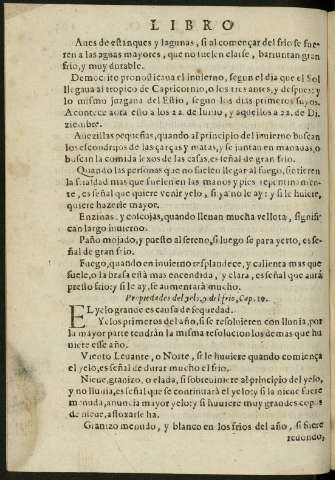 LIBRO
Aues de estanques y lagunas, si al començar del frio se fue-
ren a las aguas mayores, que no suelen elarse, barruntan gran
frio, y muy durable.
Democrito pronosticaua el inuierno, segun el dia que el Sol
llegaua al tropico de Capricornio, o los tres antes, y despues: y
lo mismo juzgaua del Estio, segun los dias primeros suyos.
Acontece aora esto a los 22. de Iunio, y aquello a 22. de Di-
ziembre.
Auezillas pequeñas, quando al principio del inuierno buscan
los escondrijos de las çarças y matas, y se juntan en manadas, o
buscan la comida lexos de las casas, es señal de gran frio.
Quando las personas que no suelen llegar al fuego, sintieren
la frialdad mas que suelen en las manos y pies repentinamen-
te, es señal que quiere venir yelo, si ya no le ay: y si le huiere,
quiere hazerle mayor.
Enzinas, y coscojas, quando llenan mucha vellota, signifi-
can largo inuierno.
Paño mojado, y puesto al sereno, si luego se para yerto, es se-
ñal de gran frio.
Fuego, quando en inuierno resplandece, y calienta mas que
suele, o la brasa està mas encendida, y clara, es señal que aurà
presto frio: y si le ay, se aumentarà mucho.
Propiedades del yelo, y del frio, Cap. 19.
EL yelo grande es causa de sequedad.
Y los primeros del año, si se resoluieren con lluuia, por
la mayor parte tendràn la misma resolucion los demas que hu
uiere esse año.
Viento Leuante, o Norte, si le huuiere quando comiença
el yelo, es señal de durar mucho el frio.
Nieue, granizo, o elada, si sobreuiniere al principio del yelo,
y no lluuia, es señal que se continuarà el yelo: y si la nieue fuere
menuda, anuncia mayor yelo: y si huuiere muy grandes copos
de nieue, afloxarse ha.
Granizo menudo, y blanco en los frios del año, si fuere
redondo,